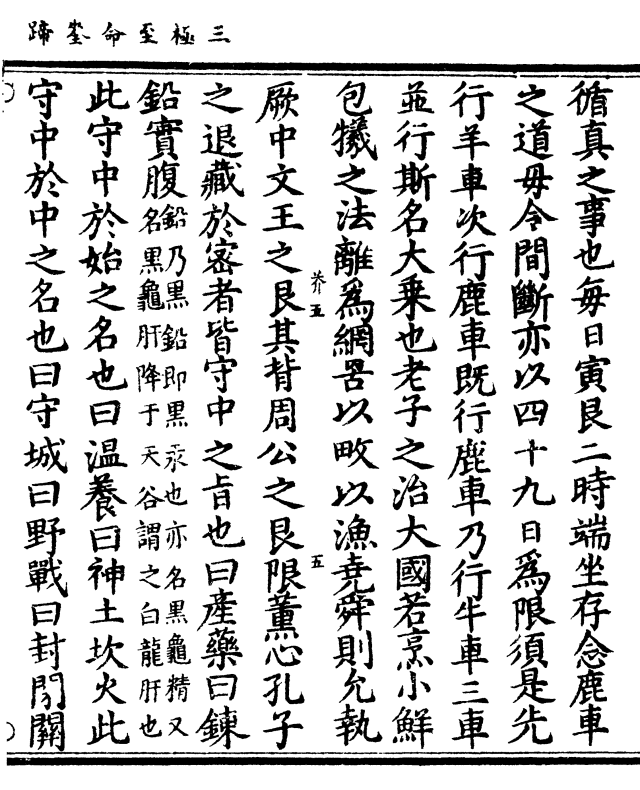 三極至命筌蹄
循真之事也每日寅艮二時端坐存念鹿車
之道毋令間斷亦以四十九日爲限須是先
行羊車次行鹿車既行鹿車乃行牛車三車
並行斯名大乘也老子之治大國若烹小鮮
包犧之法離爲網罟以畋以漁堯舜則允執
厥中文王之艮其背周公之艮限薰心孔子
荞五
五
之退藏於密者皆守中之旨也曰產藥曰鍊
鉛實腹鉛乃黑鉛即黑汞也亦名黑龜精又
名黑龜肝降于天谷謂之白龍肝也
此守中於始之名也曰温養曰神土坎火此
守中於中之名也曰守城曰野戰曰封閉關